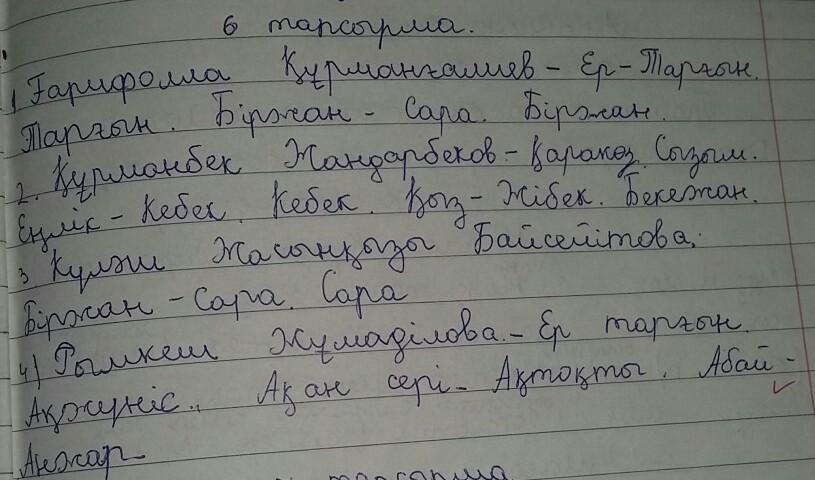 6 тапсырма.
1 Ғарифолла Құрманғалиев - Ер-Тарғын.
Тарғын. Біржан - Сара. Біржан.
2. Құрманбек Жандарбеков - Қаракөз. Сызым.
Еңлік - Кебек. Кебек. Қыз - Жібек. Бекежан.
3 Күләш Жасынқызы Байсейітова.
Біржан - Сара. Сара
4) Рымкеш Жұмаділова. - Ер тарғын.
Ақжүніс., Ақан сері - Ақтоқты. Абай -
Анжар -
тапсырма